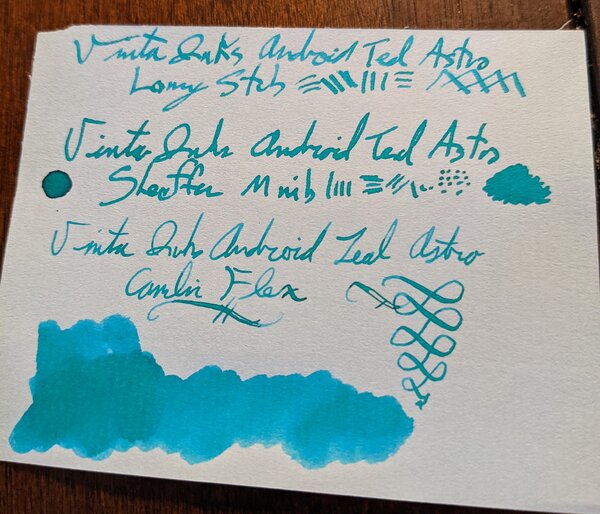 Vinta Inks Android Teal Astro
Lamy Stub
Vinta Inks Android Teal Astro
Sheaffer M nib
Vinta Inks Android Teal Astro
Camlin Flex